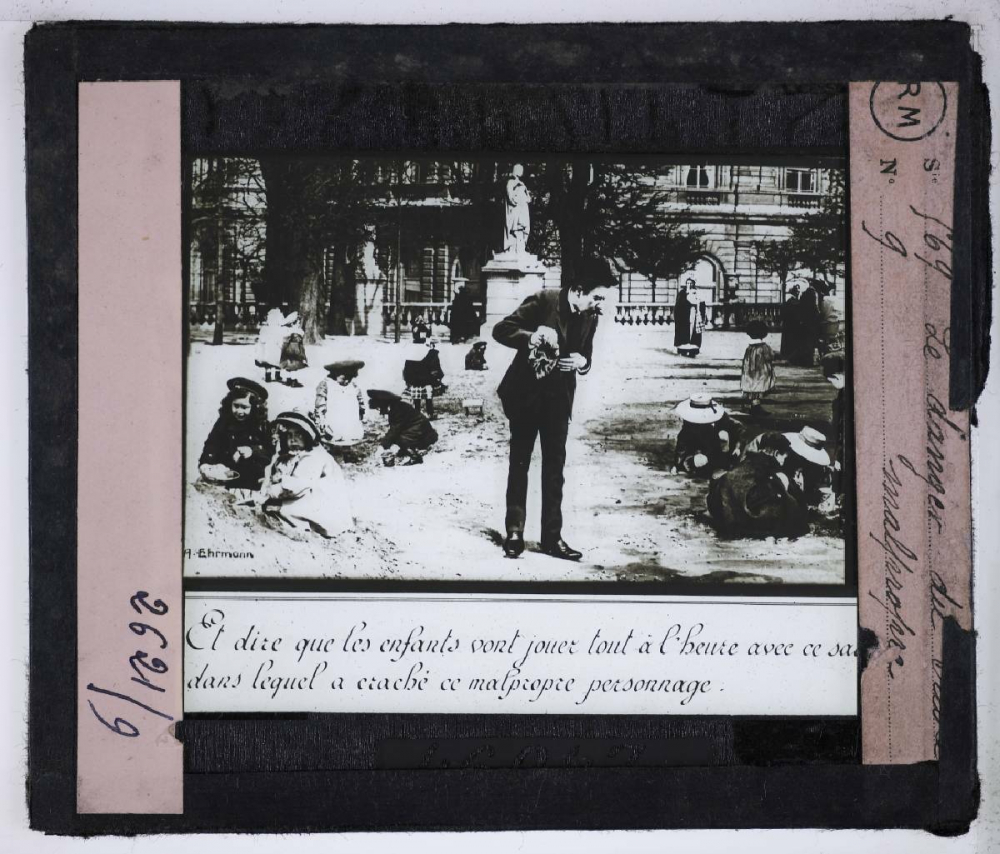 2621/9
A. Ehrmann
Et dire que les enfants vont jouer tout à l'heure avec ce sa
dans lequel a craché ce malpropre personnage.
RM
Sie 169 Le danger du
No 9 malpropre